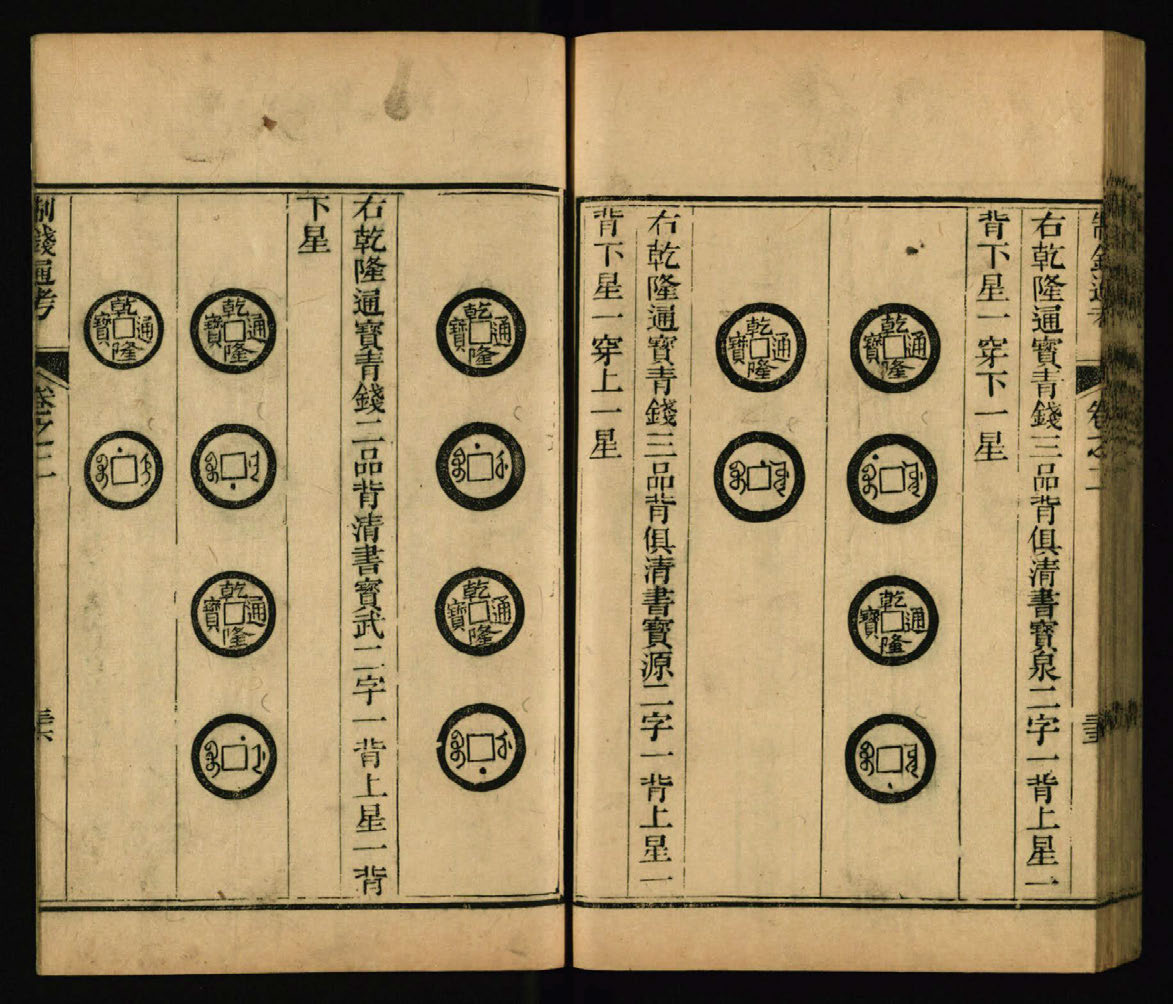 制錢通考
卷之二
右乾隆通寳青錢三品背俱清書寳泉二字一背上星一
背下星一穿下一星
乾隆通寳
乾隆通寳
乾隆通寳
右乾隆通寳青錢三品背俱清書寳源二字一背上星一
背下星一穿上一星
乾隆通寳
乾隆通寳
右乾隆通寳青錢二品背清書寳武二字一背上星一背
下星
乾隆通寳
乾隆通寳
乾隆通寳
制錢通考
卷之二